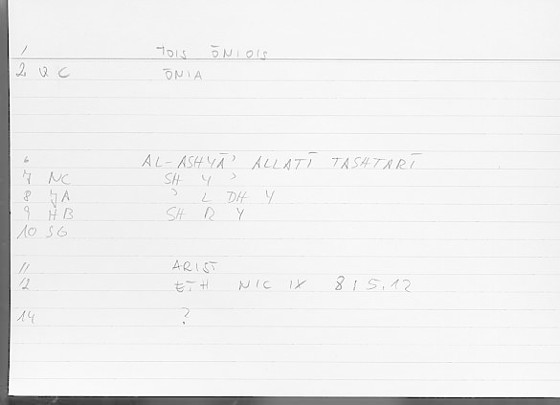 1 TOIS ŌNIOIS
2 QC ŌNIA
6 AL-ASHYĀʾ ALLATĪ TASHTARĪ
7 NC SH Y ʾ
8 JA ʾ L DH Y
9 HB SH R Y
10 SG
11 ARIST
12 ETH NIC IX 815.12
14 ?